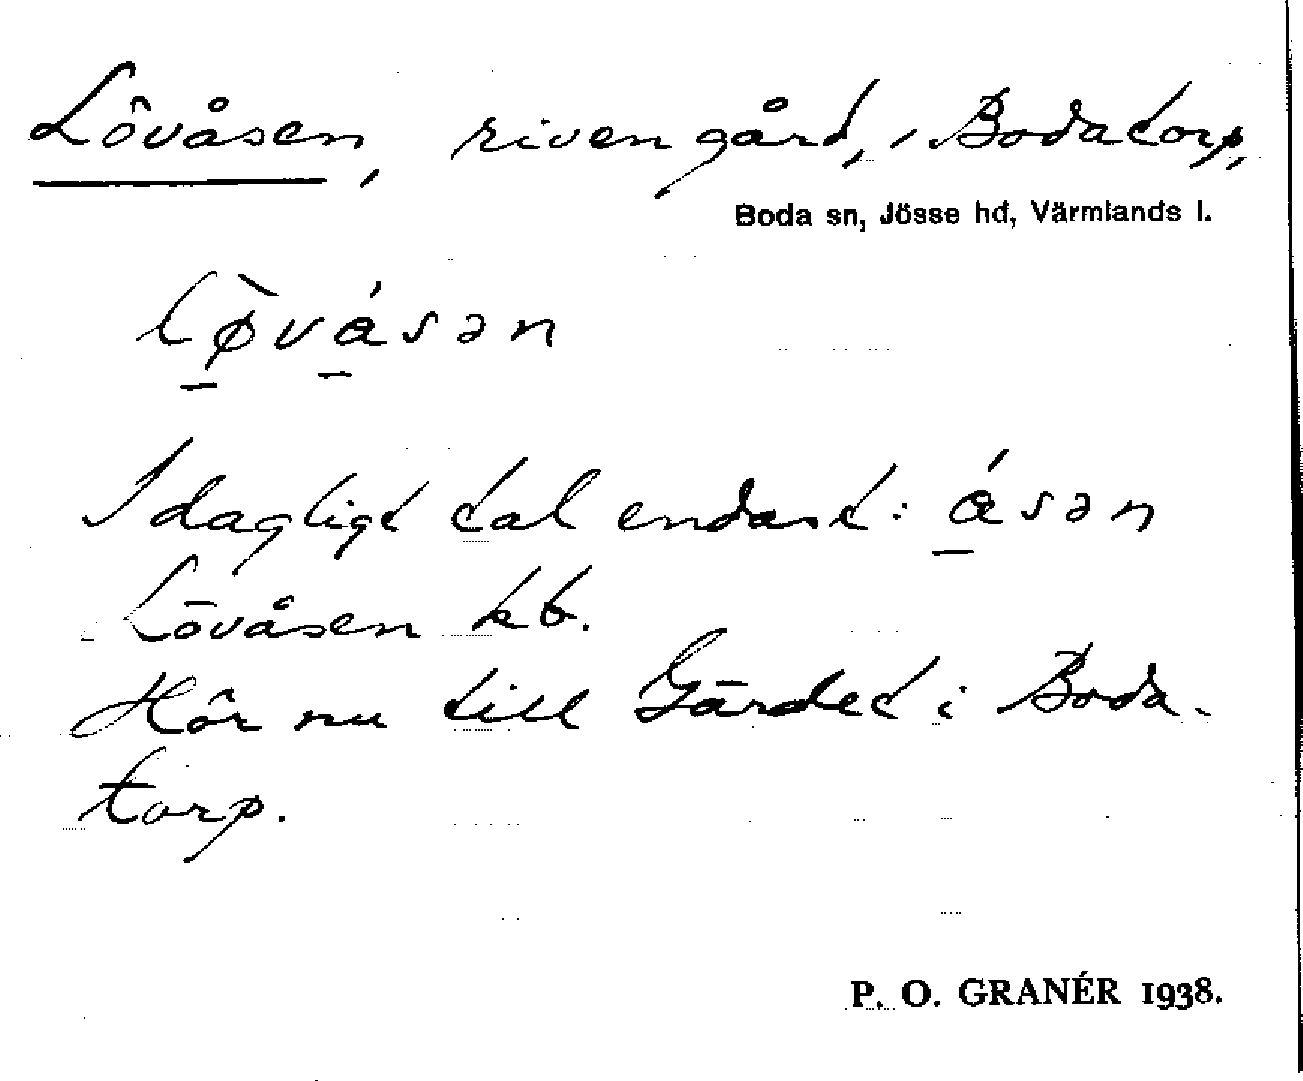 Lövåsen, riven gård, i Bodatorp,
Boda sn, Jösse hd, Värmlands l.
lø̀vásən
I dagligt tal endast: ásən
Lövåsen kb.
Hör nu till Gärdet i Boda-
torp.
P. O. GRANÉR 1938.